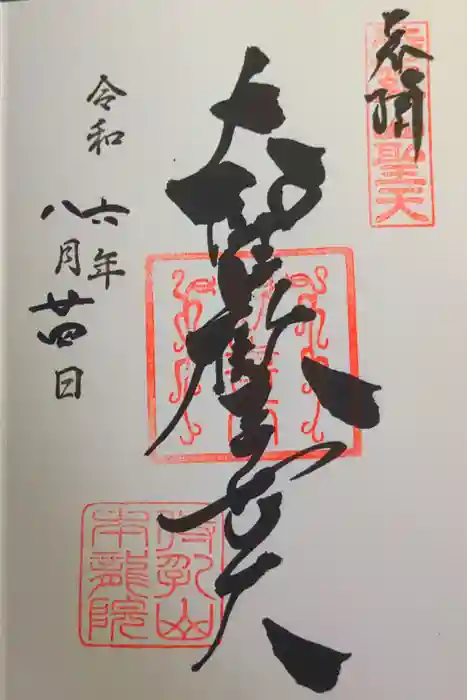 奉拝
聖天
大聖歡喜天
令和六年
八月廿四日
待乳山
本龍院